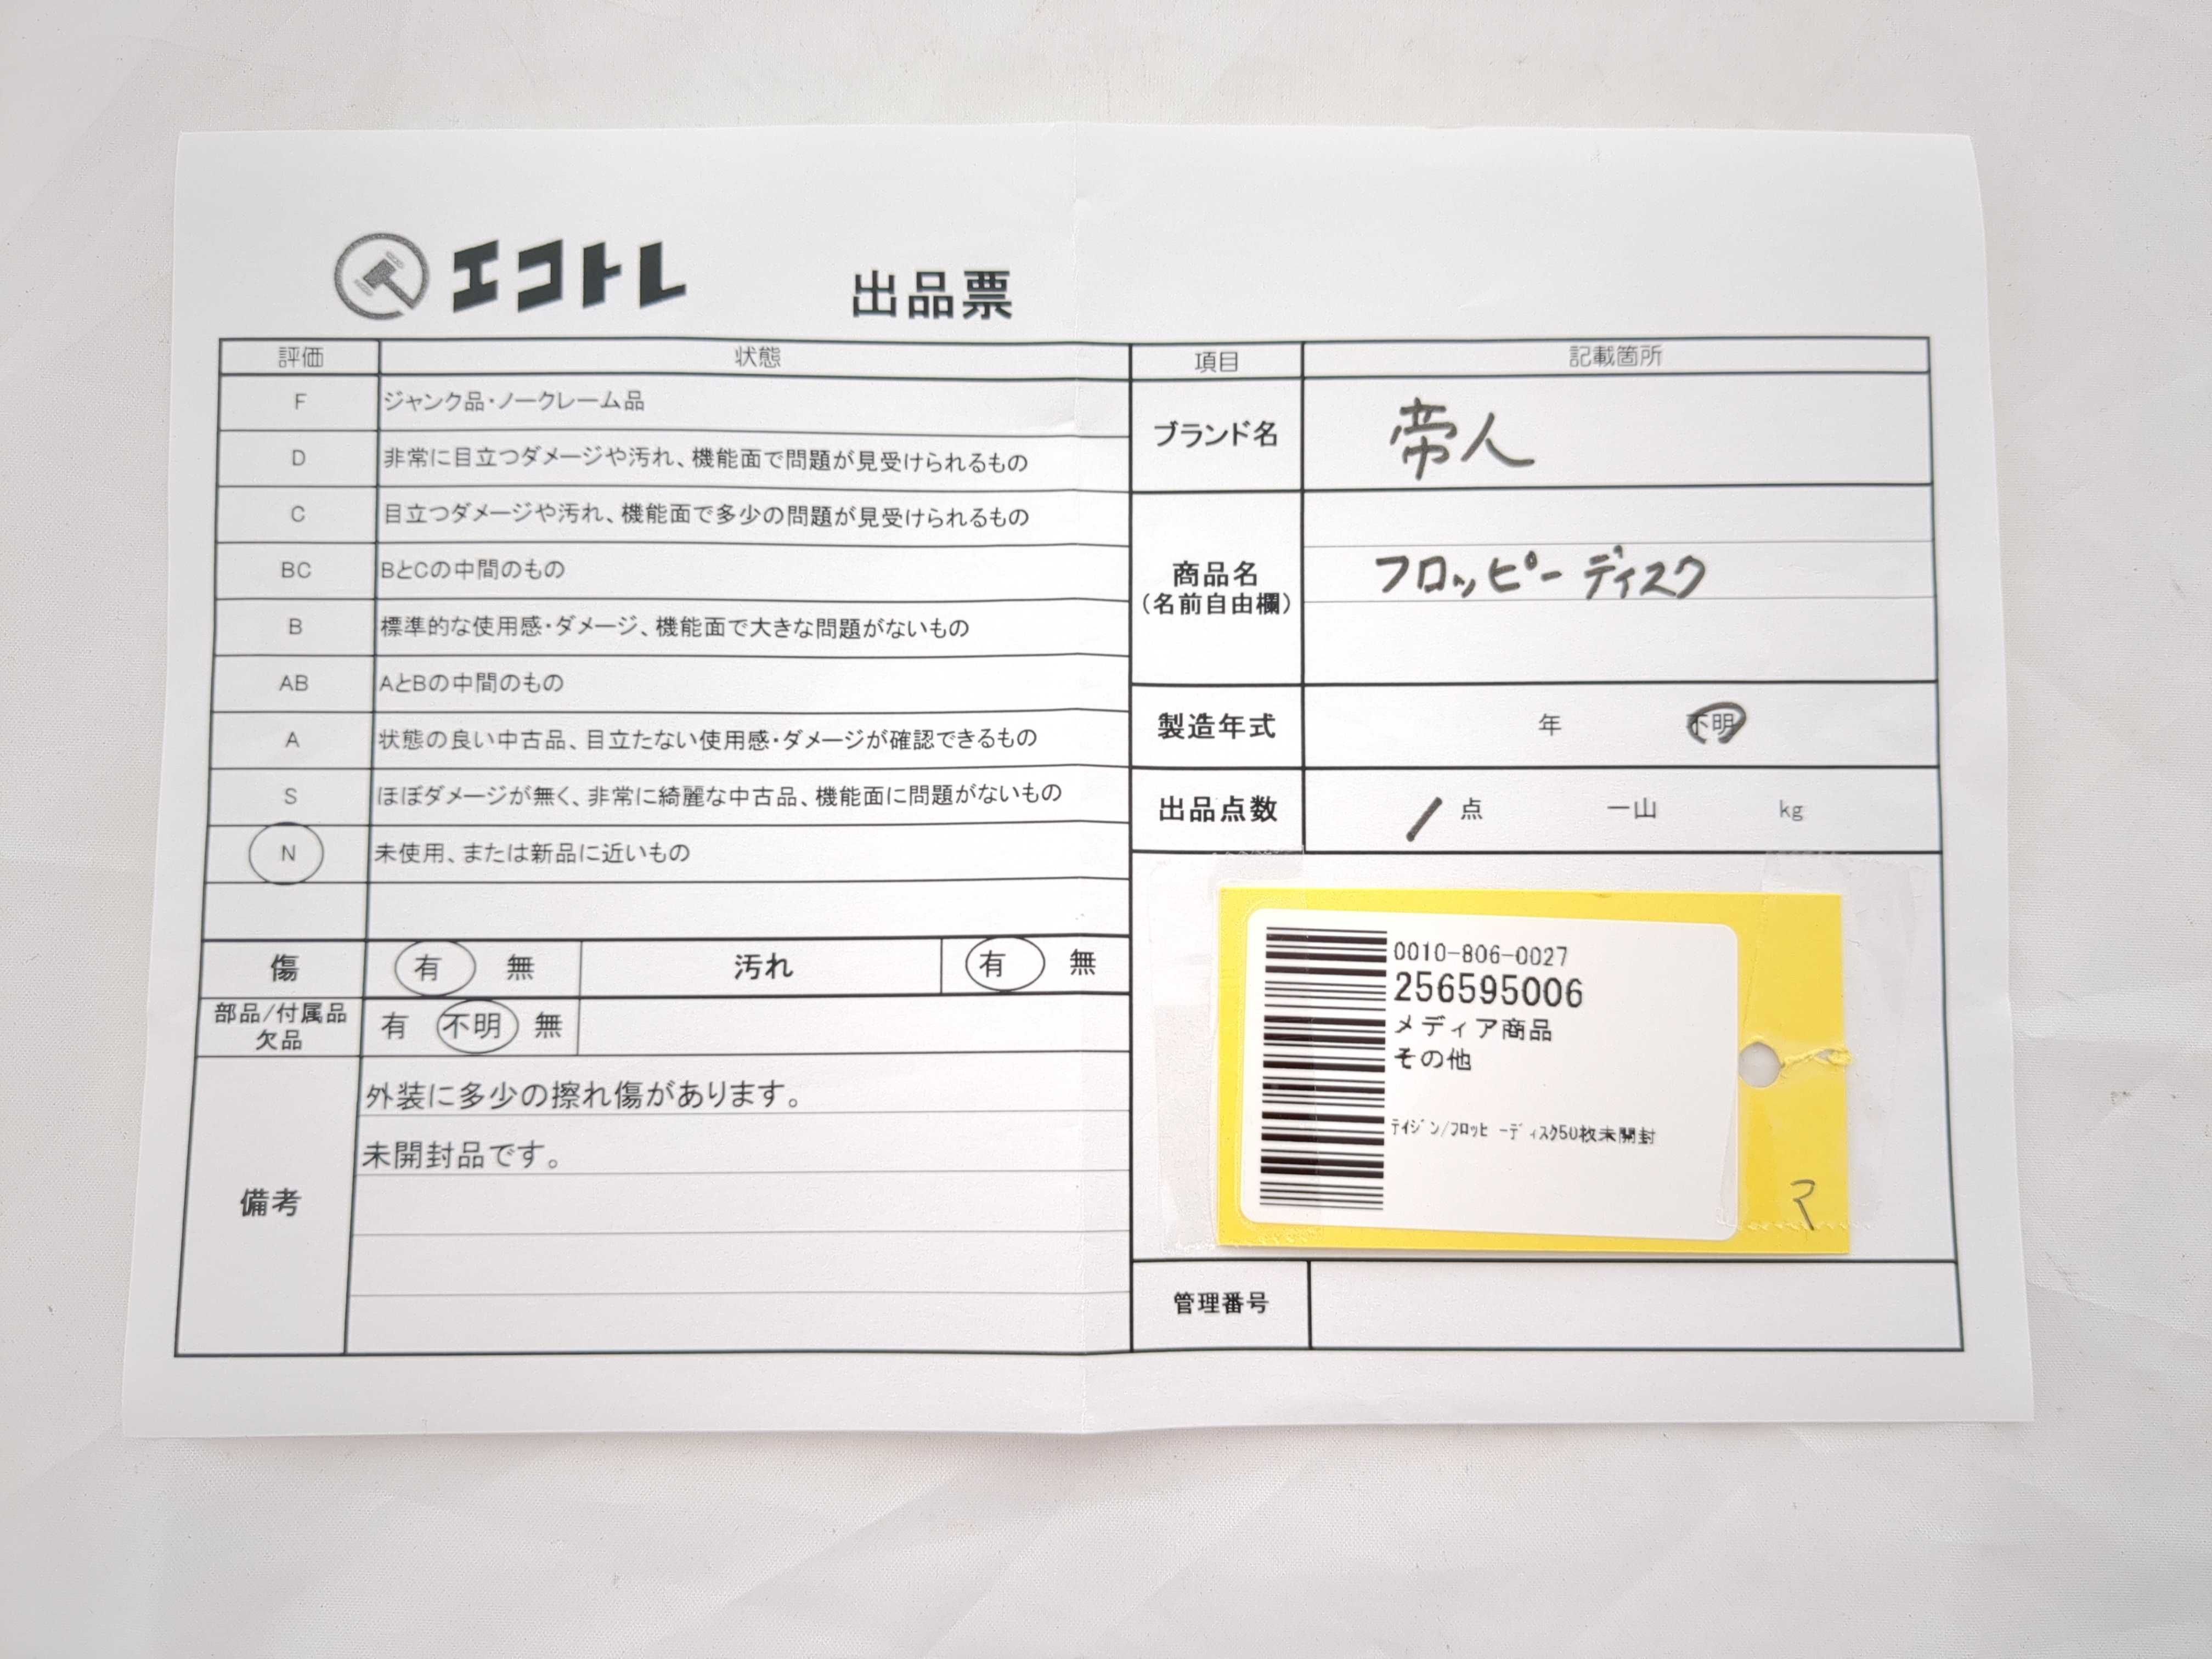 エコトレ 出品票
評価 状態
F ジャンク品・ノークレーム品
D 非常に目立つダメージや汚れ、機能面で問題が見受けられるもの
C 目立つダメージや汚れ、機能面で多少の問題が見受けられるもの
BC BとCの中間のもの
B 標準的な使用感・ダメージ、機能面で大きな問題がないもの
AB AとBの中間のもの
A 状態の良い中古品、目立たない使用感・ダメージが確認できるもの
S ほぼダメージが無く、非常に綺麗な中古品、機能面に問題がないもの
N 未使用、または新品に近いもの
傷 有 無 汚れ 有 無
部品/付属品
欠品 有 不明 無
備考
外装に多少の擦れ傷があります。
未開封品です。
項目 記載箇所
ブランド名 帝人
商品名
(名前自由欄)
フロッピーディスク
製造年式 年 不明
出品点数 1 点 一山 kg
0010-806-0027
256595006
メディア商品
その他
ﾃｲｼﾞﾝ/ﾌﾛｯﾋﾟｰﾃﾞｨｽｸ50枚未開封
管理番号